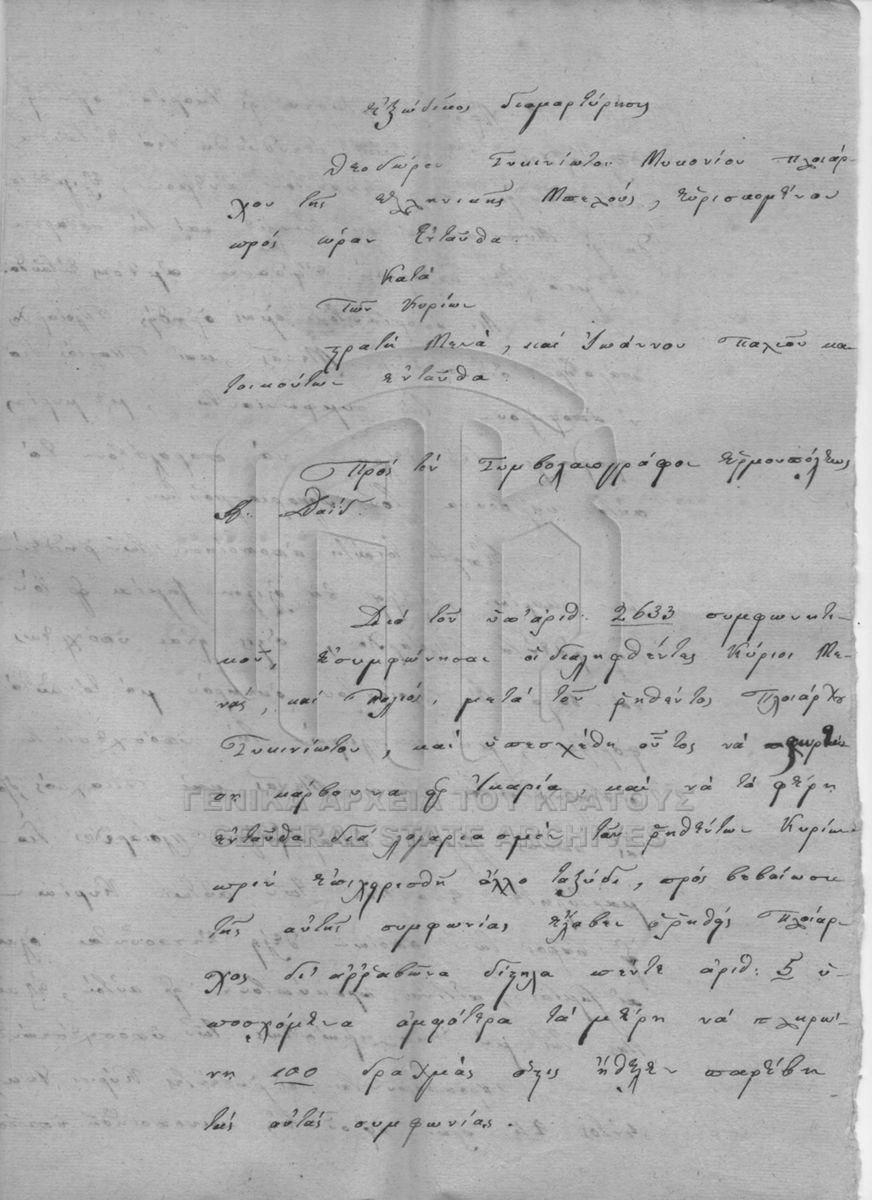 Ἐξώδικος διαμαρτύρησις
Θεοδώρου Γυκινιώτου Μυκονίου πλοιάρ-
χου τῆς Ἑλληνικῆς Μπελούς, εὑρισκομένου
πρός ὥραν ἐνταῦθα.
Κατά
Τῶν Κυρίων
Στρατῆ Μενᾶ, καί Ἰωάννου Παλιοῦ κα-
τοικούντων ἐνταῦθα.
Πρός τόν Συμβολαιογράφον Ἑρμουπόλεως
Διά τοῦ ὑπ' ἀριθ: 2633 συμφωνητι-
κοῦ, ἐσυμφώνησαν οἱ διαληφθέντες Κύριοι Με-
νᾶς, καί Παλιός, μετά τοῦ ῥηθέντος Πλοιάρχου
Γυκινιώτου, καί ὑπεσχέθη οὗτος νά φορτώ-
ση κάρβουνα ἐξ Ἰκαρία, καί νά τά φέρη
ἐνταῦθα διά λογαριασμόν τῶν ῥηθέντων Κυρίων
πρίν ἐπιχειρισθῆ ἄλλο ταξύδι, πρός βεβαίωσιν
τῆς αὐτῆς συμφωνίας ἔλαβεν ὁ ῥηθείς Πλοίαρ-
χος δι' ἀρραβῶνα δίστηλα πέντε ἀριθ: 5 ὑ-
ποσχόμενα ἀμφότερα τά μέρη νά πληρώ-
νη 100 δραχμάς ὅστις ἤθελεν παρέβη
τάς αὐτάς συμφωνίας.
ΓΕΝΙΚΑ ΑΡΧΕΙΑ ΤΟΥ ΚΡΑΤΟΥΣ
GENERAL STATE ARCHIVES